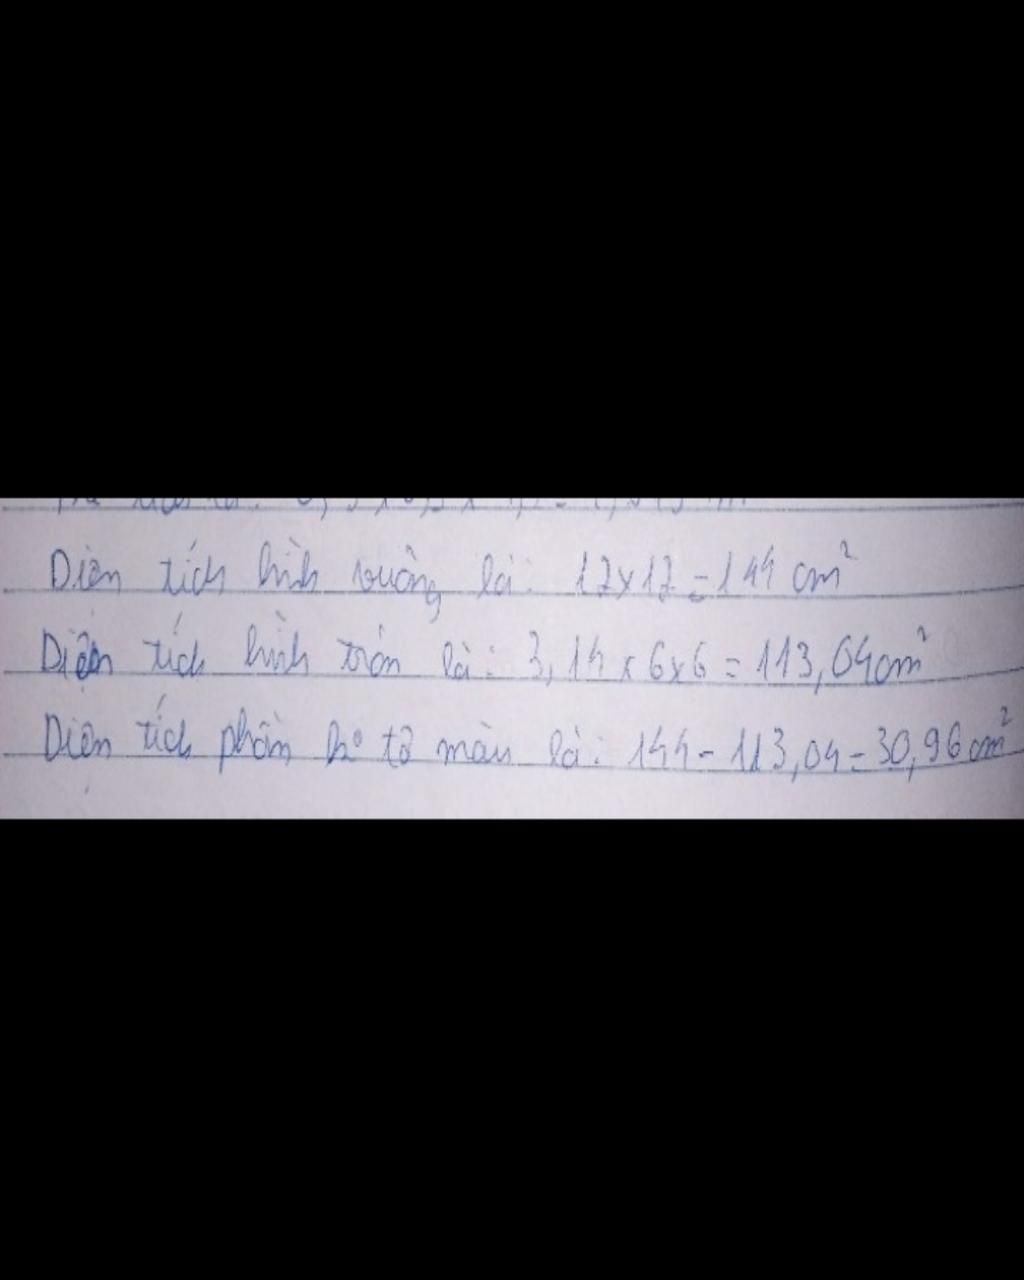 Diện tích hình vuông là: 12x12=144 cm²
Diện tích hình tròn là: 3,14 x 6x6 = 113,04cm²
Diện tích phần tô màu là: 144- 113,04=30,96 cm²